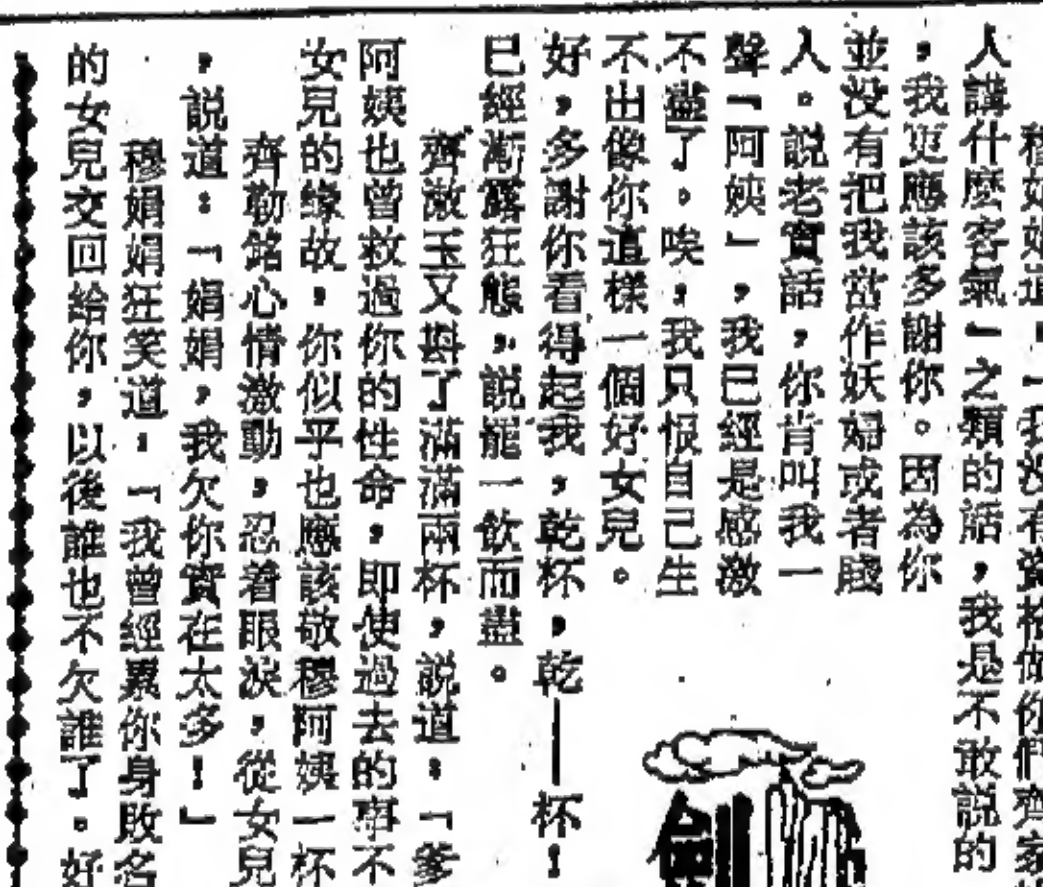 穆娟娟道：「我没有資格做你們齊家
人講什麽客氣」之類的話，我是不敢説的
，我更應該多謝你。因為你
並没有把我當作妖婦或者賤
人。説老實話，你肯叫我一
聲「阿姨」，我已經是感激
不盡了。唉，我只恨自己生
不出像你這樣一個好女兒。
好，多謝你看得起我，乾杯，乾——杯！
已經漸露狂態，説罷一飲而盡。
齊漱玉又斟了滿滿兩杯，説道：「爹
阿姨也曾救過你的性命，即使過去的事不
女兒的緣故，你似乎也應該敬穆阿姨一杯
齊勒銘心情激動，忍着眼淚，從女兒
，説道：「娟娟，我欠你實在太多！」
穆娟娟狂笑道：「我曾經累你身敗名
的女兒交回給你，以後誰也不欠誰了。好